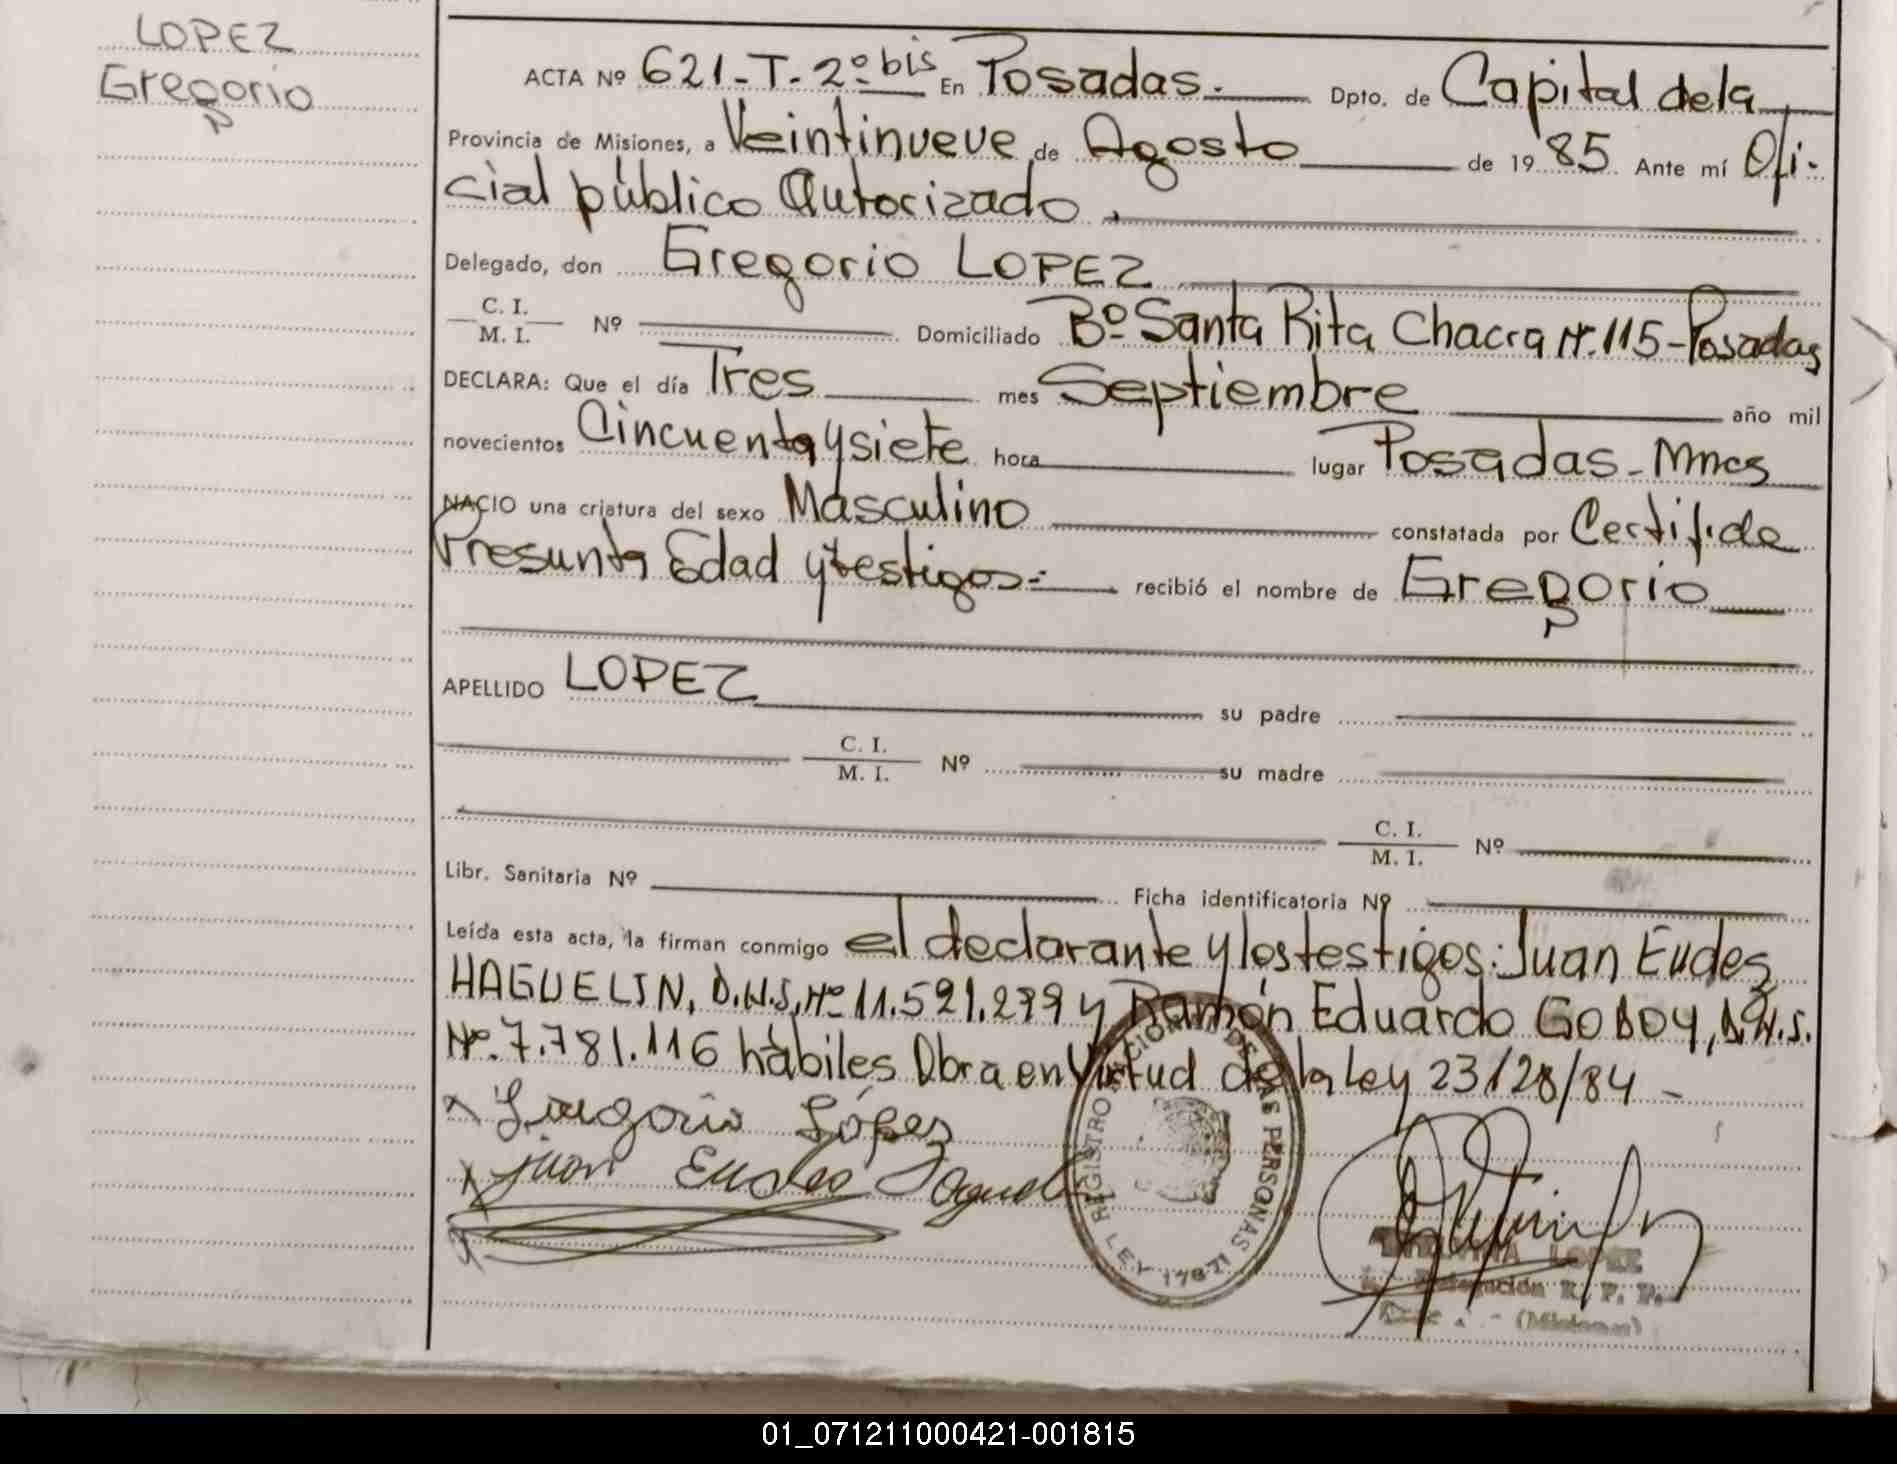 LOPEZ
Gregorio
ACTA Nº 621-T-2º bis En Posadas.- Dpto. de Capital de la
Provincia de Misiones, a Veintinueve de Agosto de 1985 Ante mí Ofi-
cial público Autorizado.
Delegado, don Gregorio LOPEZ
C. I.
M. I. Nº Domiciliado Bº Santa Rita Chacra Nº.115-Posadas
DECLARA: Que el día Tres mes Septiembre año mil
novecientos Cincuenta y siete hora lugar Posadas-Mnes
NACIO una criatura del sexo Masculino constatada por Certif. de
Presunta Edad y testigos.- recibió el nombre de Gregorio
APELLIDO LOPEZ su padre
C. I.
M. I. Nº su madre
C. I.
M. I. Nº
Libr. Sanitaria Nº Ficha identificatoria Nº
Leída esta acta, la firman conmigo el declarante y los testigos: Juan Eudes
HAGUELIN, D.N.I. Nº 11.521.279 y Ramón Eduardo GODOY, D.N.I.
Nº.7.781.116 hàbiles Obra en Virtud de la Ley 23128/84 -
Gregorio López
Juan Eudes
REGISTRO NACIONAL DE LAS PERSONAS
LEY 17671
LOPEZ
(Misiones)
01_071211000421-001815